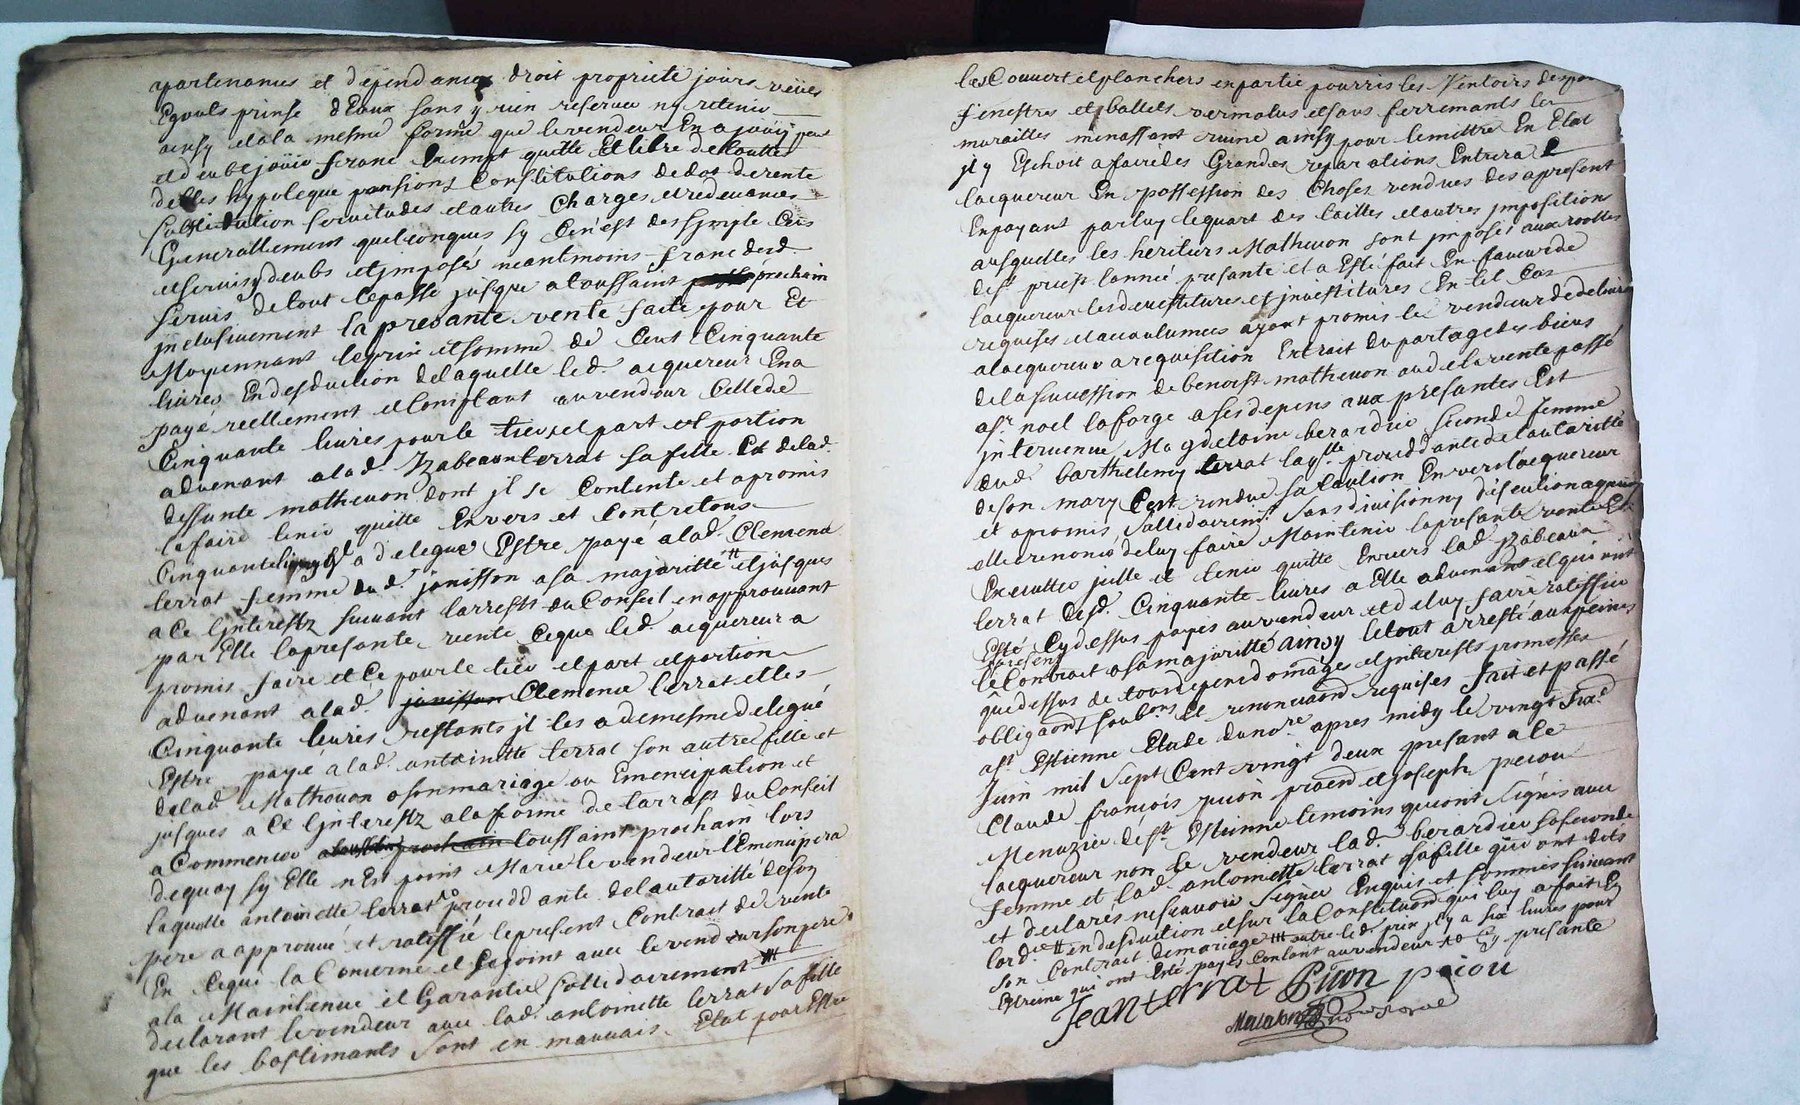 apartenances et dependances droit propriete jours veües
Egouts prinse d'Eaux sans y rien reserver ny retenir
ainsy et a la mesme forme que le vendeur En a jouÿ peu
et deub ejoüir franc Exempt quitte Et libre de touttes
debtes hypoteque pansions Constitutions de dot de rente
substitution servitudes et autres Charges et redevances
Generallement quelconques sy Ce n'est des simple Cens
et servis y deubs et imposés neantmoins franc desd.
servis de tout le passé jusque a toussaint prochain
inclusivement la presante vente faite pour Et
Moyennant le prix et somme de Cent Cinquante
livres En desduction de laquelle led. acquereur En a
payé reellement et Comptant au vendeur Celle de
Cinquante livres pour le tiers et part et portion
advenant a lad. Izabeau terrat sa fille Et de lad.
deffunte mathevon dont il se Contente et a promis
le faire tenir quitte Envers et Contre tous
Cinquante livres a delegué Estre payé a lad. Clemence
terrat femme dud. janisson a sa majorité et jusques
a Ce l'interestz suivant l'arrests du Conseil en approuvant
par Elle la presante vente Ceque led. acquereur a
promis faire et Ce pour le tier et part et portion
advenant a lad. janisson Clemence terrat et les
Cinquante livres restants il les a de mesme delegué
Estre payé a lad. antoinette terrat son autre fille et
de lad. Mathevon a son mariage ou Emencipation et
jusques a Ce l'interestz a la forme de l'arrast du Conseil
a Commencer toussaint prochain lors
de quoy sy Elle n'Est point Mariée le vendeur l'Emencipera
laquelle antoinette terrat procedante de l'autorité de son
pere a approuvé et ratiffié le present Contrait de vente
En Ceque la Concerne et se joint avec le vendeur son pere
a la Maintenue et Garantie sollidairement
declarant le vendeur avec lad. antoinette terrat sa fille
que les bastimants sont en mauvais Etat pour Estre
les Couvert et planchers en partie pourris les Ventoirs des portes
fenestres et ballets vermolus et sans ferremants les
murailles menassant ruine ainsy pour le mettre En Etat
il y Echoit a faire des Grandes reparations Entrera
l'acquereur En possession des Choses vendues des a present
En payant par luy le quart des tailles et autres impositions
ausquelles les heritiers Mathevon sont imposés aux rooles
dest priest l'année presante et a Esté fait En faveur de
l'acquereur les devestitures et investitures En tel Cas
requises et accoutumees ayant promis le vendeur de delivrer
a l'acquereur a requisition Extrait du partage des biens
de la succession de benoist mathevon aud de la vente passé
a sr. noel laforge a ses depens aux presantes Est
intervenue Magdelaine berardier seconde femme
dud. barthelemy terrat laqlle. proceddante de l'autoritté
de son mary s'est rendue sa Caution Envers l'acquereur
et a promis sollidairemt. sans division ny discution a quoy
elle a renoncé de luy faire Maintenir la presante vente Et
En outre jcelle et tenir quitte Envers lad. izabeau
terrat desd. Cinquante livres a Elle advenant et qui ont
Esté Cydessus payés au vendeur et de luy faire ratiffier
le present
Contrait a sa majoritté ainsy le tout arresté aux peines
que dessus de tous depens domages et interests promesses
obligaons soubons. Et renonciaons requises fait et passé
a st. Estienne Etude du nore. apres midy le vingt trois
Juin mil sept Cent vingt deux presant a Ce
Claude françois picon praen et joseph pe[r]iou
Menuzier de st. Estienne temoins qui ont signés avec
l'acquereur non le vendeur lad. berardier sa seconde
femme et lad. antoinette terrat sa fille qui ont dits
et declarés ne scavoir signer Enquis et sommés suivant
l'ordce en desduction et sur la Constitution qui luy a fait En
son Contrait de mariage outre led. prix il y a six livres pour
Estreine qui ont Esté payés Contant au vendeur En presante
Jean terrat Picon periou